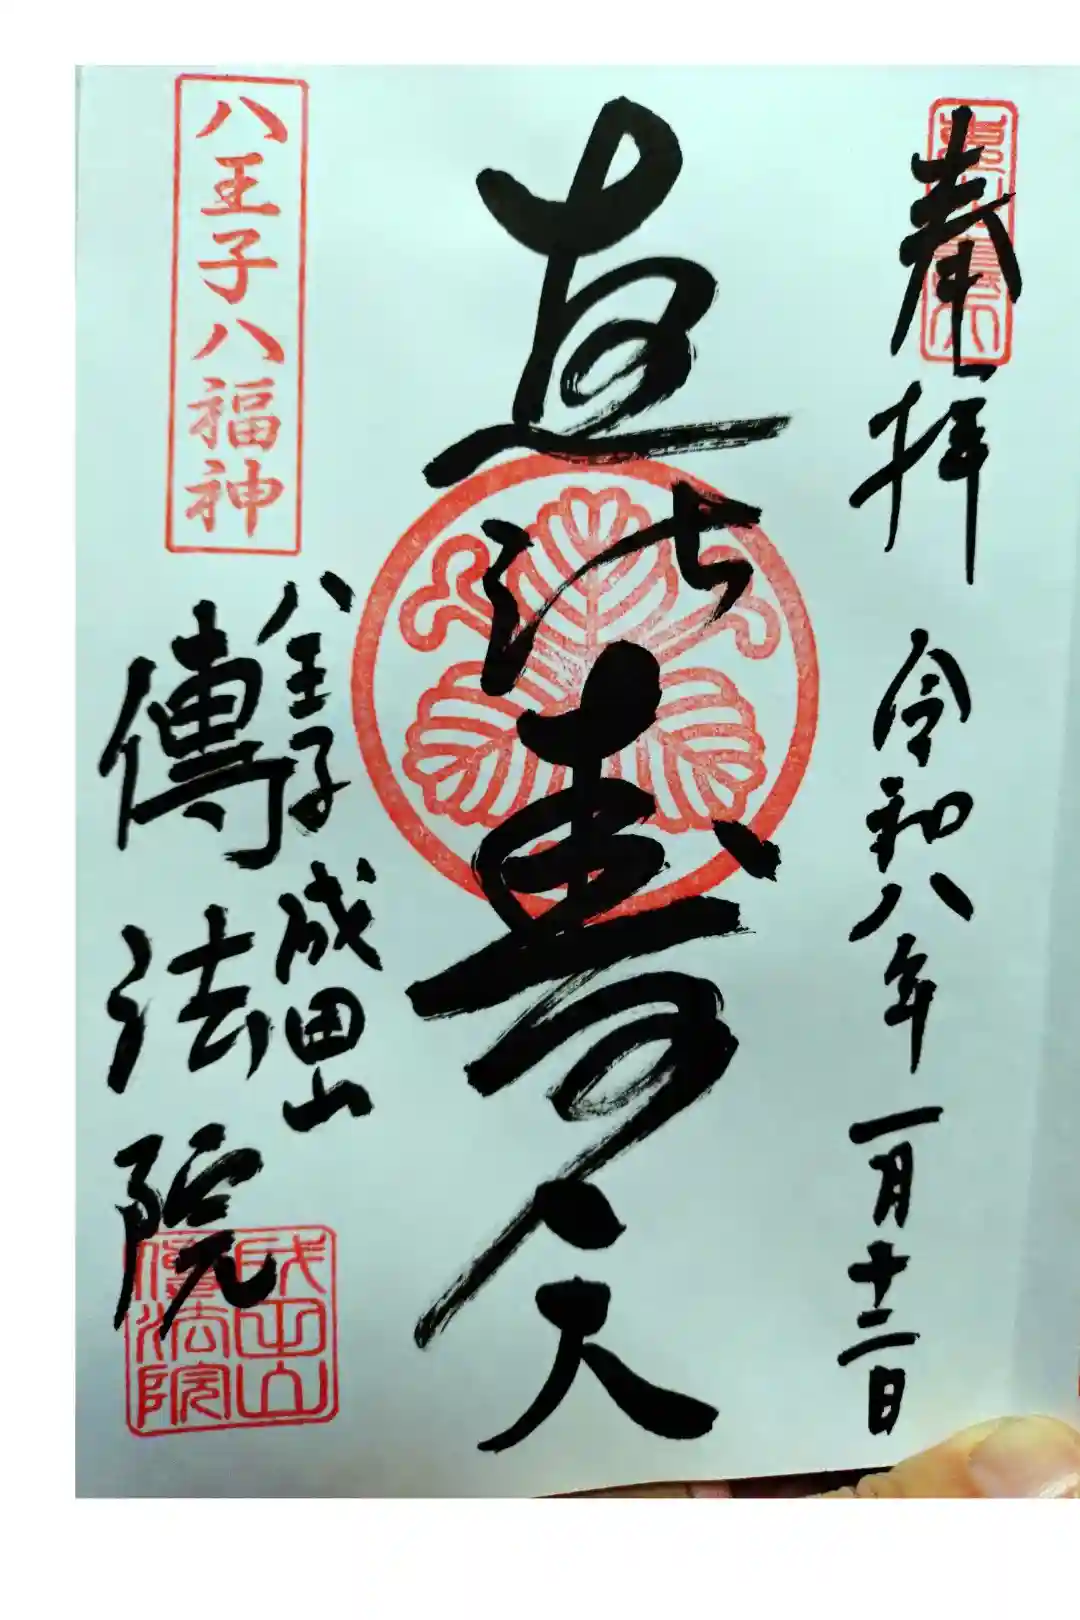 奉拝
令和八年一月十二日
恵比寿天
八王子八福神
八王子成田山
傳法院
成田山
傳法院